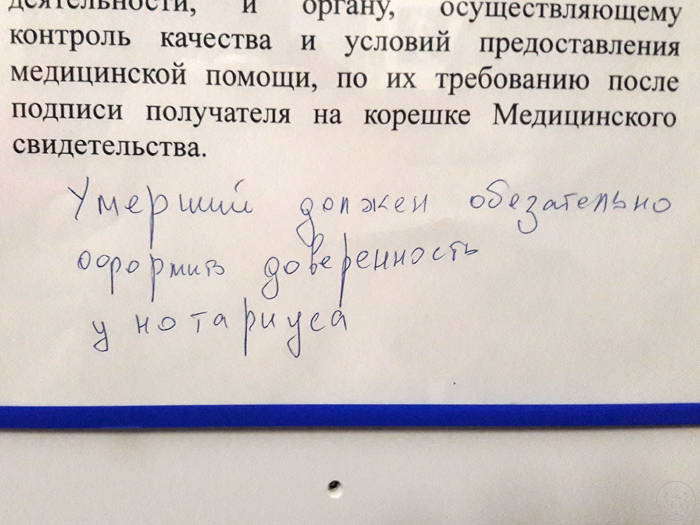 деятельности, и органу, осуществляющему
контроль качества и условий предоставления
медицинской помощи, по их требованию после
подписи получателя на корешке Медицинского
свидетельства.
Умерший должен обезательно
оформить доверенность
у нотариуса